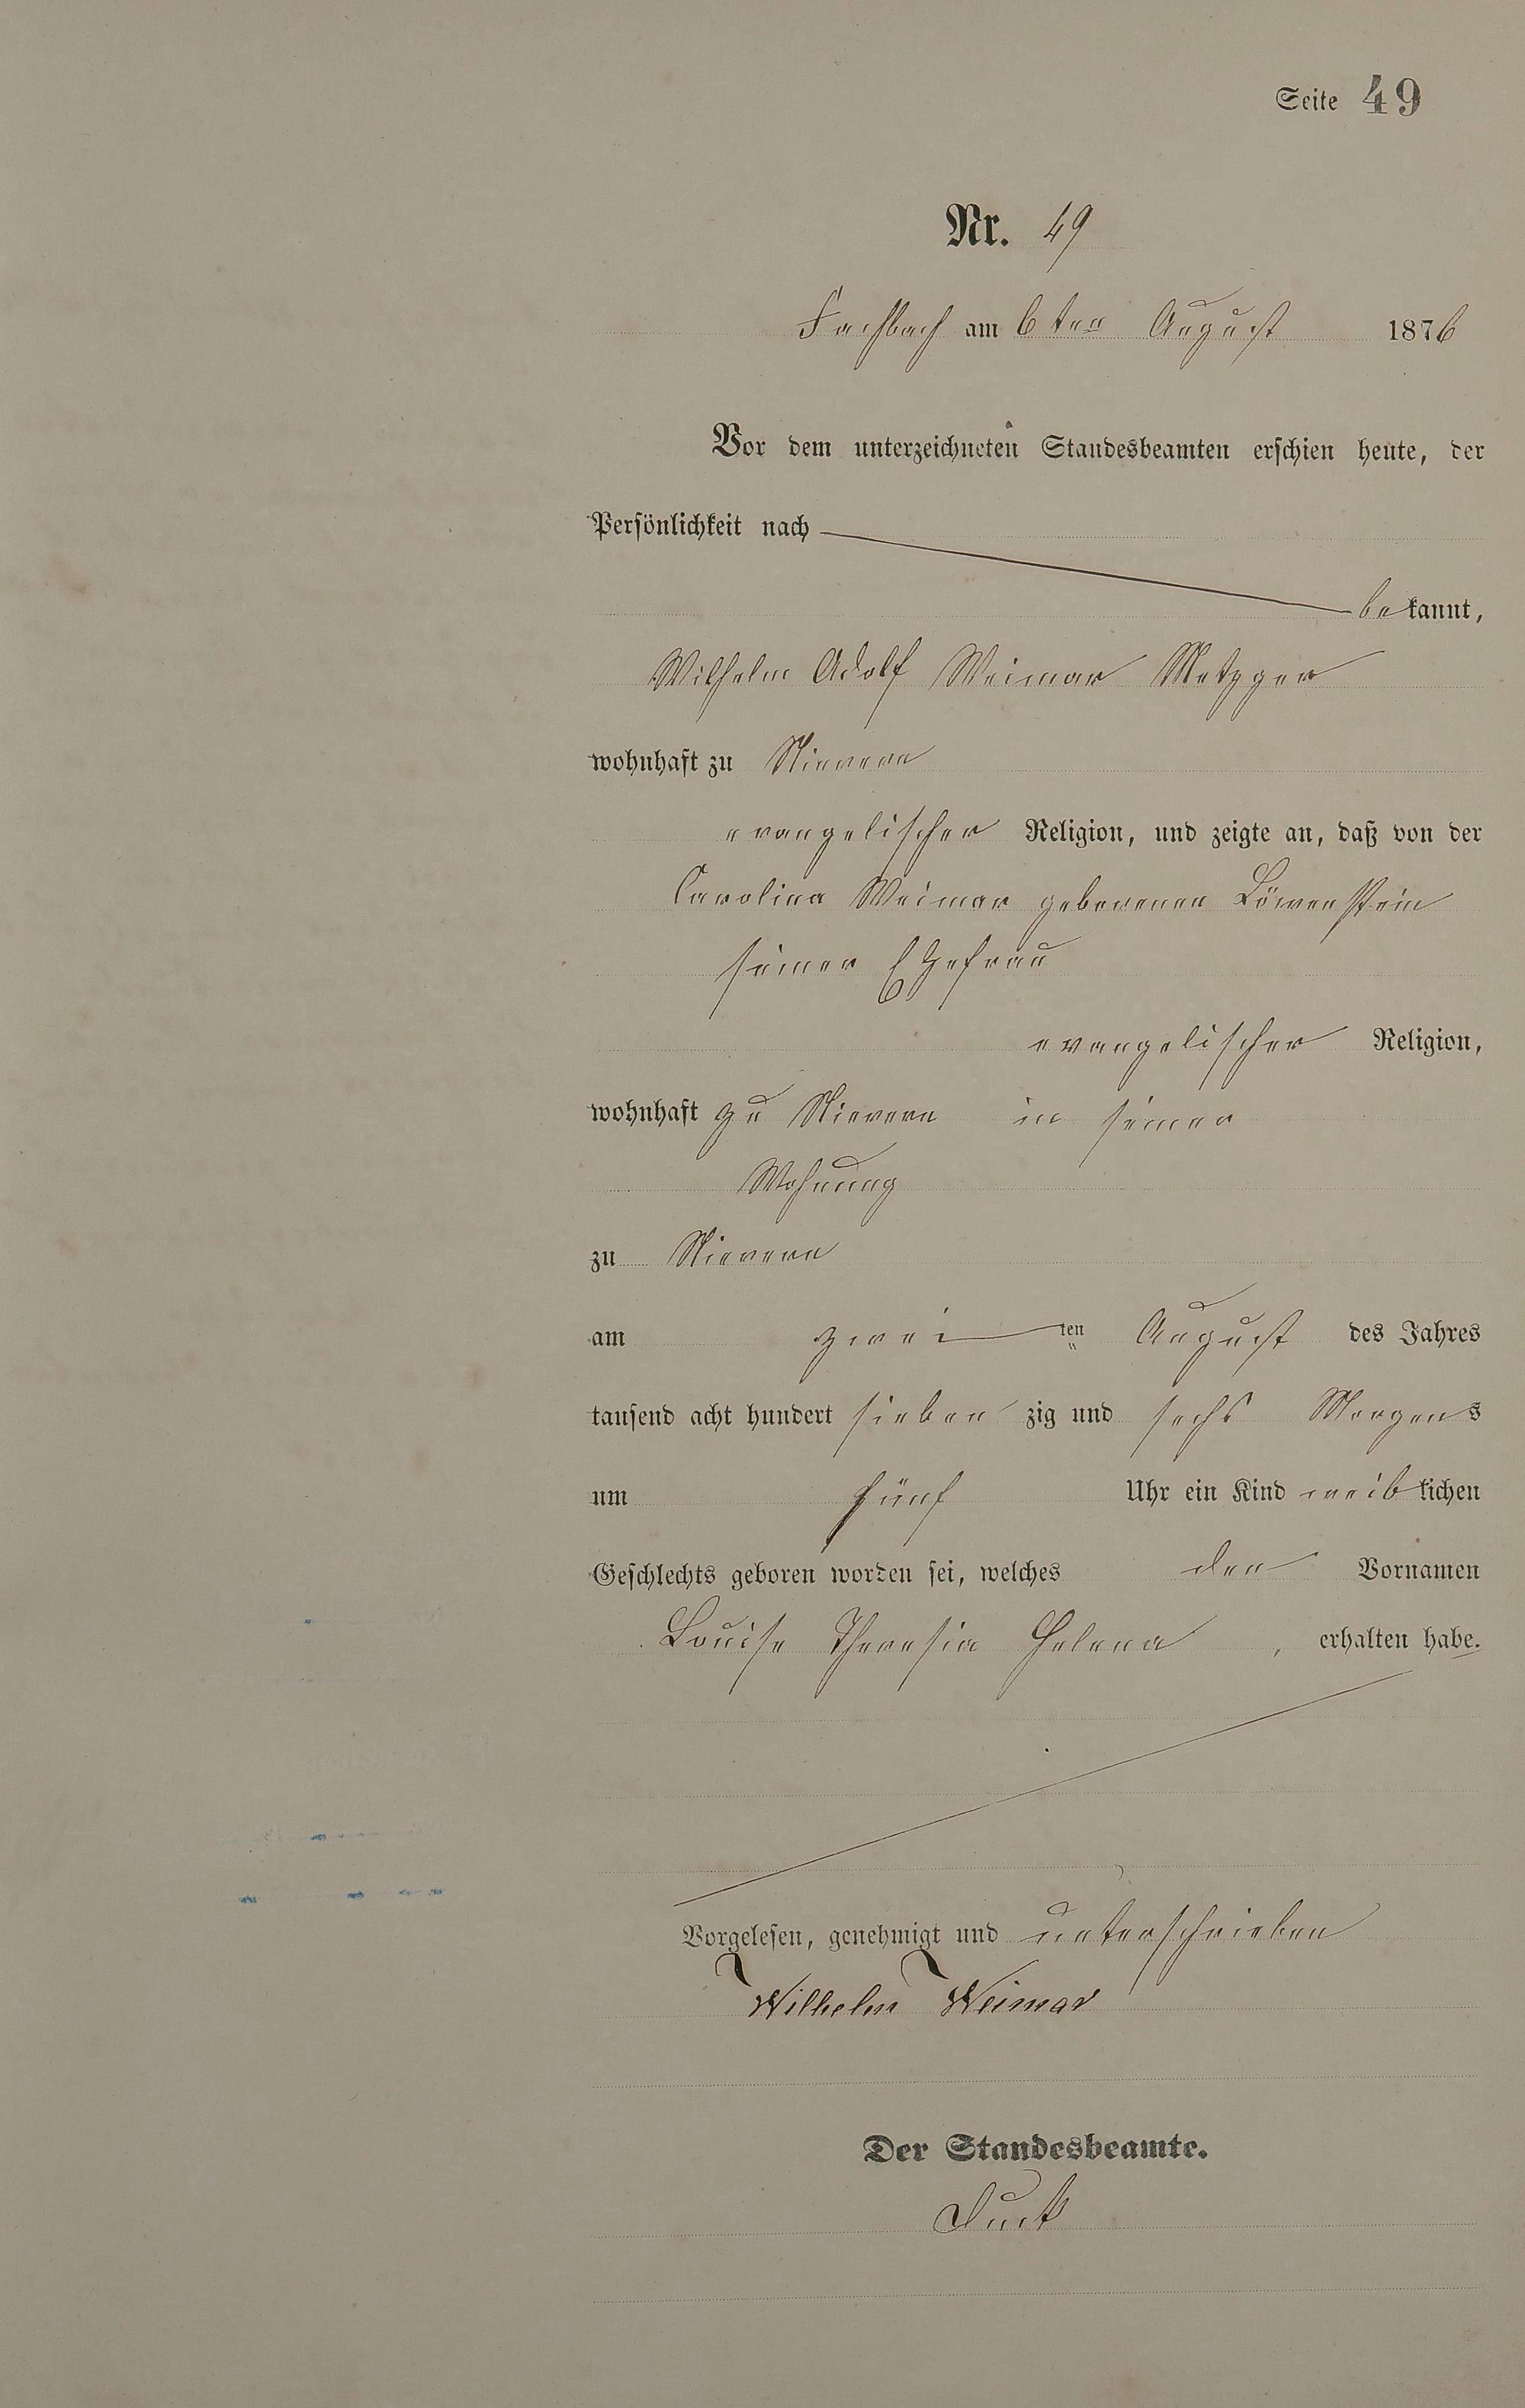 Seite 49
Nr. 49
Fachbach am 6ten August 1876
Vor dem unterzeichneten Standesbeamten erschien heute, der
Persönlichkeit nach
bekannt,
Wilhelm Adolf Weimar Metzger
wohnhaft zu Nievern
evangelischer Religion, und zeigte an, daß von der
Carolina Weimar geborenen Löwenstein
seiner Ehefrau
evangelischer Religion,
wohnhaft zu Nievern in seiner
Wohnung
zu Nievern
am zwei ten August des Jahres
tausend acht hundert sieben zig und sechs Morgens
um fünf Uhr ein Kind weiblichen
Geschlechts geboren worden sei, welches den Vornamen
Louise Theresia Helena, erhalten habe.
Vorgelesen, genehmigt und unterschrieben
Wilhelm Weimar
Der Standesbeamte.